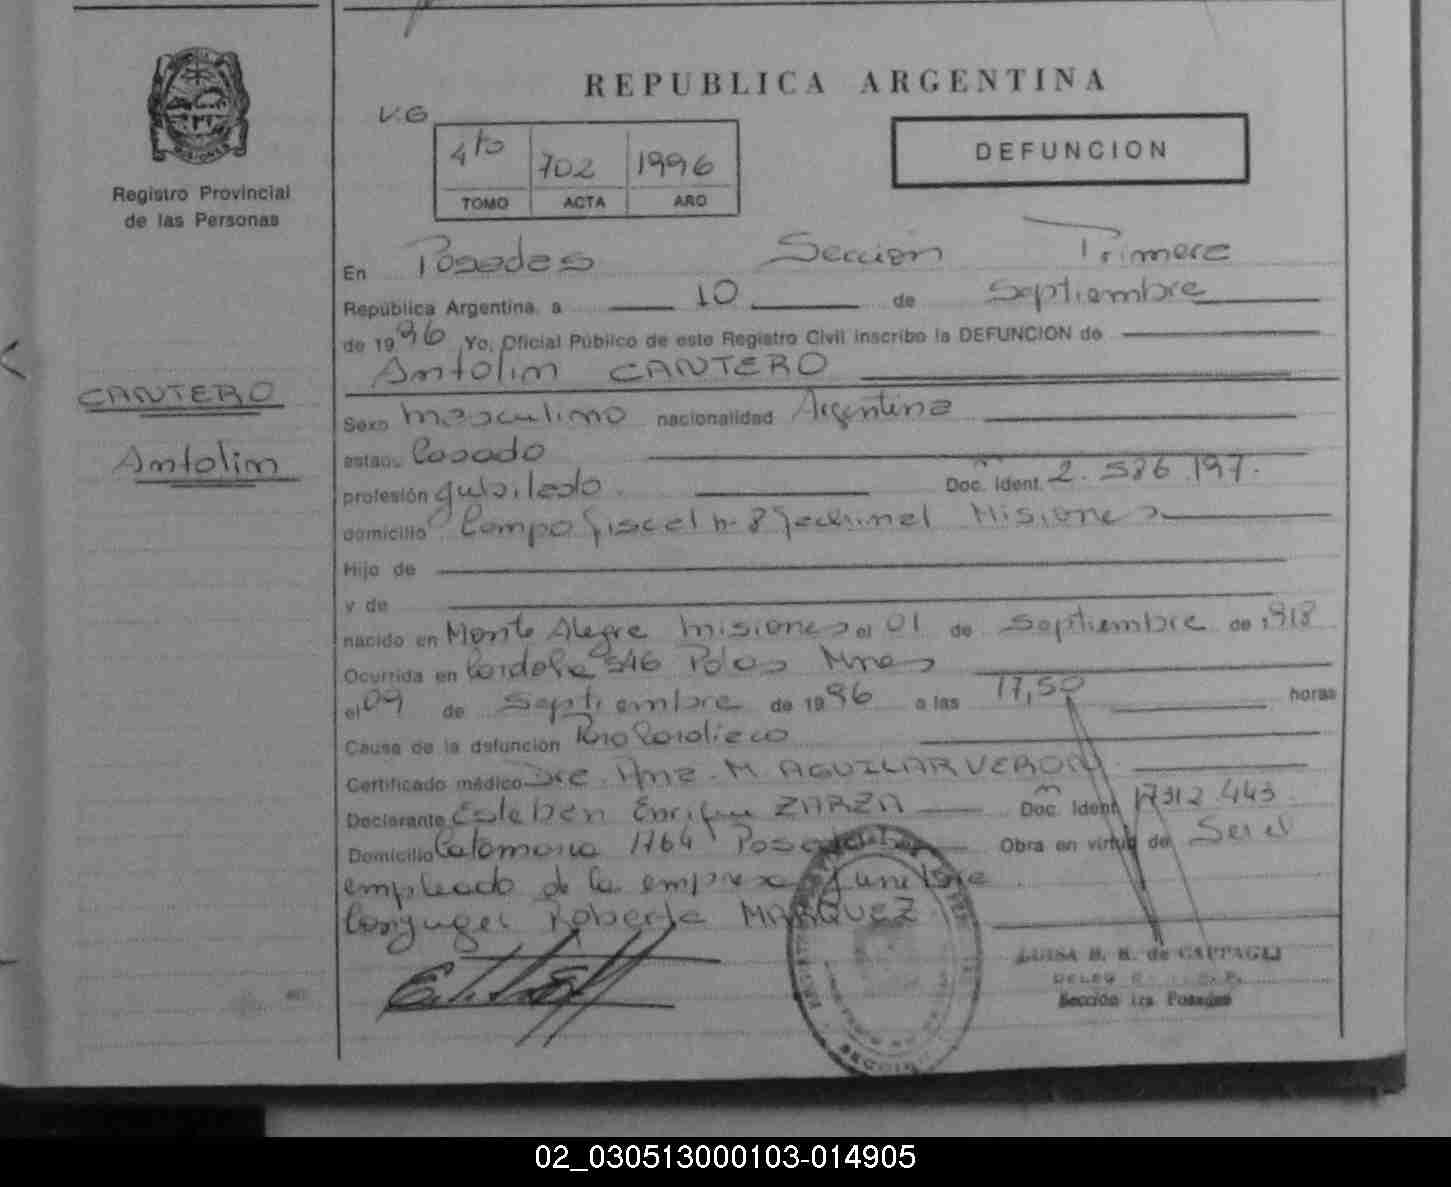 REPUBLICA ARGENTINA
V.G
4to 702 1996
TOMO ACTA AÑO
DEFUNCION
MISIONES
Registro Provincial
de las Personas
CANTERO
Antolin
En Posadas Sección Primera
República Argentina, a 10 de Septiembre
de 1996 Yo, Oficial Público de este Registro Civil inscribo la DEFUNCION de
Antolin CANTERO
Sexo masculino nacionalidad Argentina
estado Casado
profesión jubilado. Doc. Ident. 2.586.197.
domicilio Campo fiscal n- 8 Misiones
Hijo de
y de
nacido en Monte Alegre Misiones el 01 de Septiembre de 1918
Ocurrida en Cordoba 546 Pdas Mnes
el 09 de Septiembre de 1996 a las 17,50 horas
Cause de la defunción Cardiaco
Certificado médico Dra. Ana. M AGUILAR VERON
Declarante Esteban Enrique ZARZA Doc. Ident. 17312.443.
Domicilio Catamarca 1764 Posadas Obra en virtud de Ser el
empleado de la empresa funebre
Conyuge: Roberta MARQUEZ
LUISA B. R. de CAPPAGLI
Sección 1ra Posadas
02_030513000103-014905